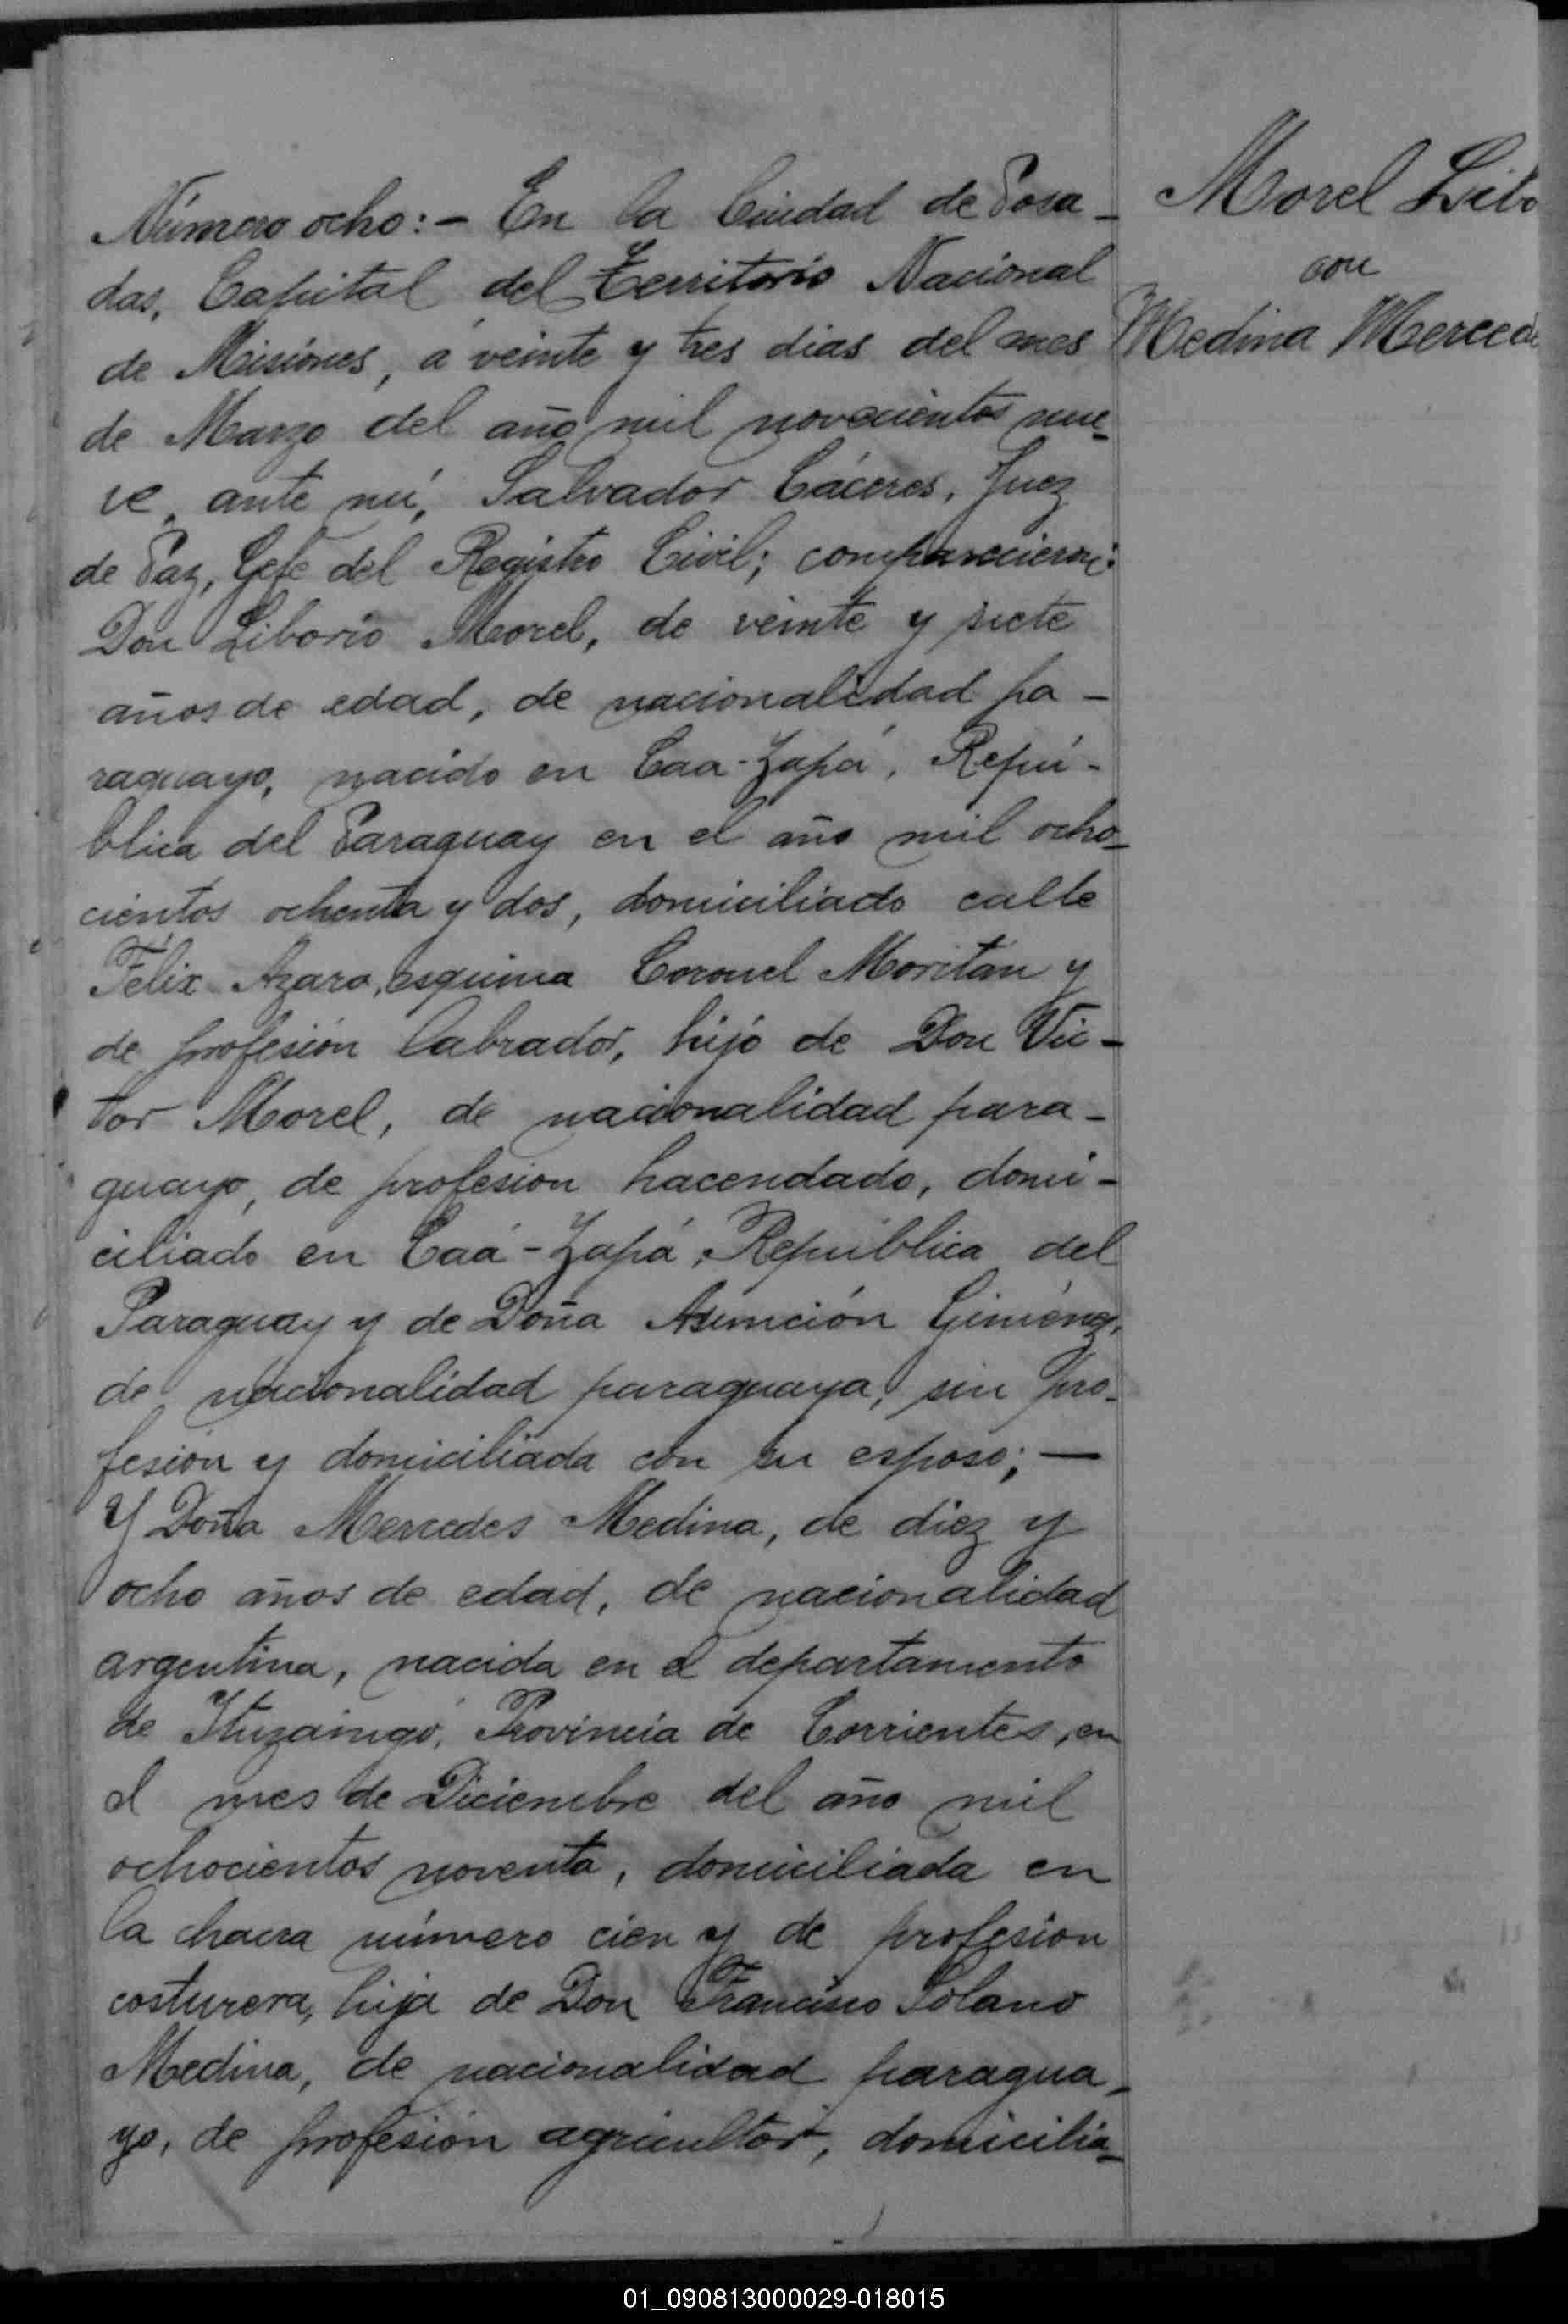 Número ocho: - En la Ciudad de Posa-
das, Capital del Territorio Nacional
de Misiones, á veinte y tres dias del mes
de Marzo del año mil novecientos nue-
ve, ante mí, Salvador Cáceres, Juez
de Paz, Gefe del Registro Civil; comparecieron:
Don Liborio Morel, de veinte y siete
años de edad, de nacionalidad pa-
raguayo, nacido en Caa-Zapá, Repú-
blica del Paraguay en el año mil ocho-
cientos ochenta y dos, domiciliado calle
Félix Azara, esquina Coronel Moritán y
de profesión labrador, hijo de Don Vic-
tor Morel, de nacionalidad para-
guayo, de profesión hacendado, domi-
ciliado en Caá-Zapá, República del
Paraguay y de Doña Asunción Giménez,
de nacionalidad paraguaya, sin pro-
fesión y domiciliada con su esposo; —
Y Doña Mercedes Medina, de diez y
ocho años de edad, de nacionalidad
argentina, nacida en el departamento
de Ituzaingó, Provincia de Corrientes, en
el mes de Diciembre del año mil
ochocientos noventa, domiciliada en
la chacra número cien y de profesión
costurera, hija de Don Francisco Solano
Medina, de nacionalidad paragua-
yo, de profesión agricultor, domicilia-
Morel Libo
con
Medina Mercede
01_090813000029-018015